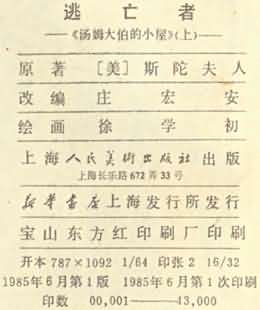 逃亡者
——《汤姆大伯的小屋》(上)——
原著 [美]斯陀夫人
改编 庄宏安
绘画 徐学初
上海人民美術出版社出版
上海长乐路672弄33号
新华書店上海发行所发行
宝山东方红印刷厂印刷
开本787×1092 1/64 印张2 16/32
1985年6月第1版 1985年6月第1次印刷
印数 00,001——43,000